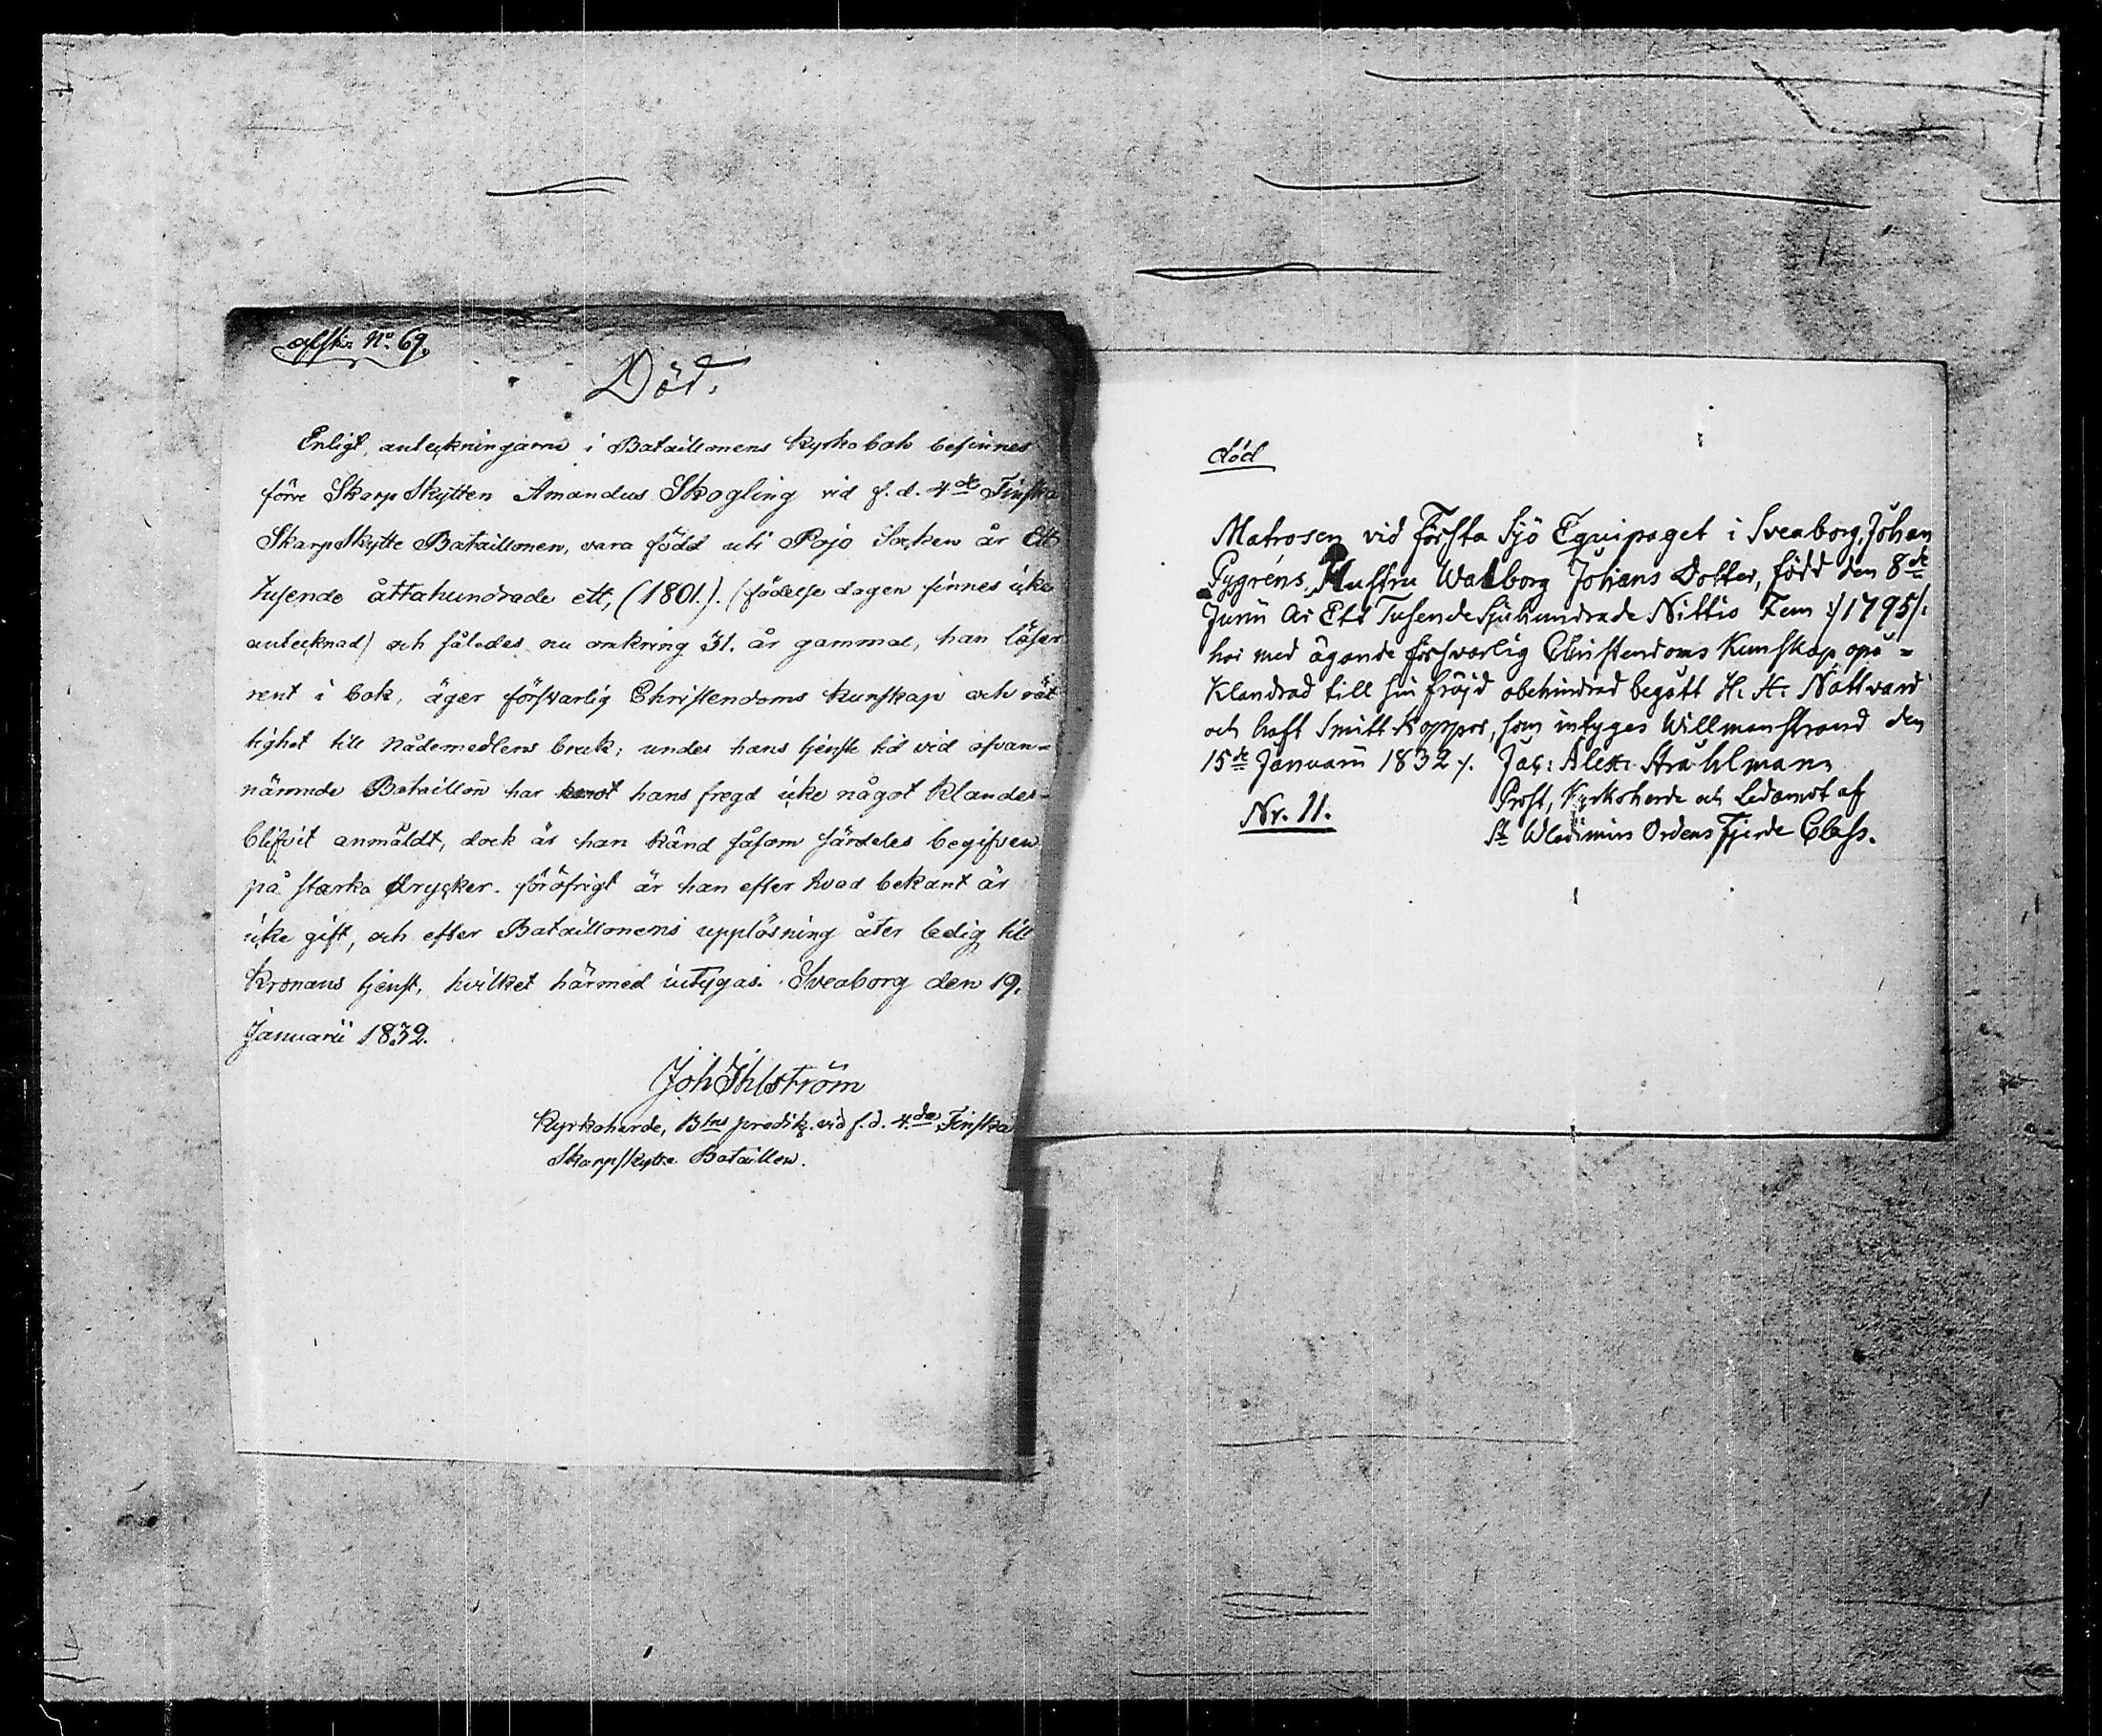 afsk. No. 69.
Död.
Enligt anteckningarne i Bataillonens kyrkobok befinnes
förre SkarpSkytten Amandus Skogling vid f. d. 4de Finska
SkarpSkytte Bataillonen, vara född uti Pojo Socken år Ett
tusende åttahundrade ett, (1801.). (födelse dagen finnes icke
antecknad) och således nu omkring 31. år gammal, han läser
rent i bok, äger försvarlig Christendoms kunskap och rät
tighet till nådemedlens bruk; under hans tjenste tid vid ofvan-
nämnde Bataillon har emot hans fregd icke något klander
blifvit anmäldt, dock är han känd såsom särdeles begifven
på starka drycker. föröfrigt är han efter hvad bekant är
icke gift, och efter Bataillonens upplösning åter ledig till
Kronans tjenst, hvilket härmed intygas. Sveaborg den 19.
Januarii 1832.
Joh Ihlström
Kyrkoherde, Btns predik. vid f. d. 4.de Finska
Skarpskytte Bataillon.
död
Matrosen vid Första Sjö Equipaget i Sveaborg, Johan
Pygréns Hustru Walborg Johans Dotter, född den 8de
Junii År Ett Tusende Sjuhundrade Nittio Fem :/1795/:
har med ägande försvarlig Christendoms Kunskap, opå-
klandrad till sin fräjd obehindrad begått H. H. Nattvard
och haft Smitt Koppor, som intyges Willmanstrand den
15de Januarii 1832 /. Jac: Alex: Stråhlman
Prost, Kyrkoherde och Ledamot af
St Wladimirs Ordens Fjerde Class.
Nr. 11.